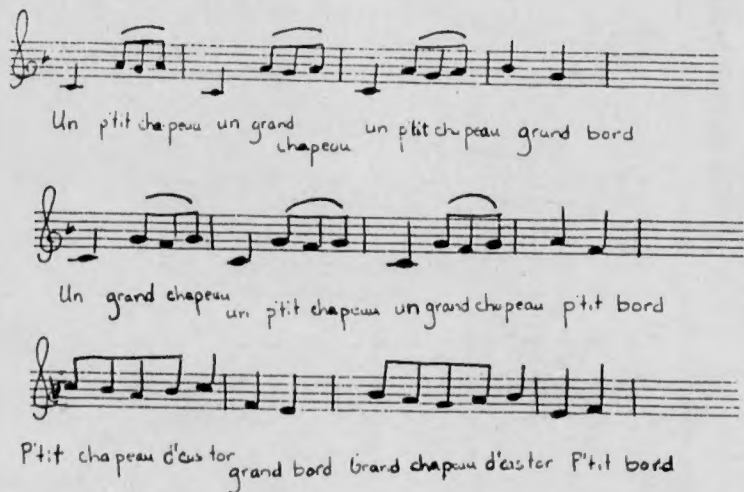 Un p'tit chapeau un grand chapeau un p'tit chapeau grand bord
Un grand chapeau un p'tit chapeau un grand chapeau p'tit bord
P'tit chapeau d'castor grand bord Grand chapeau d'castor P'tit bord